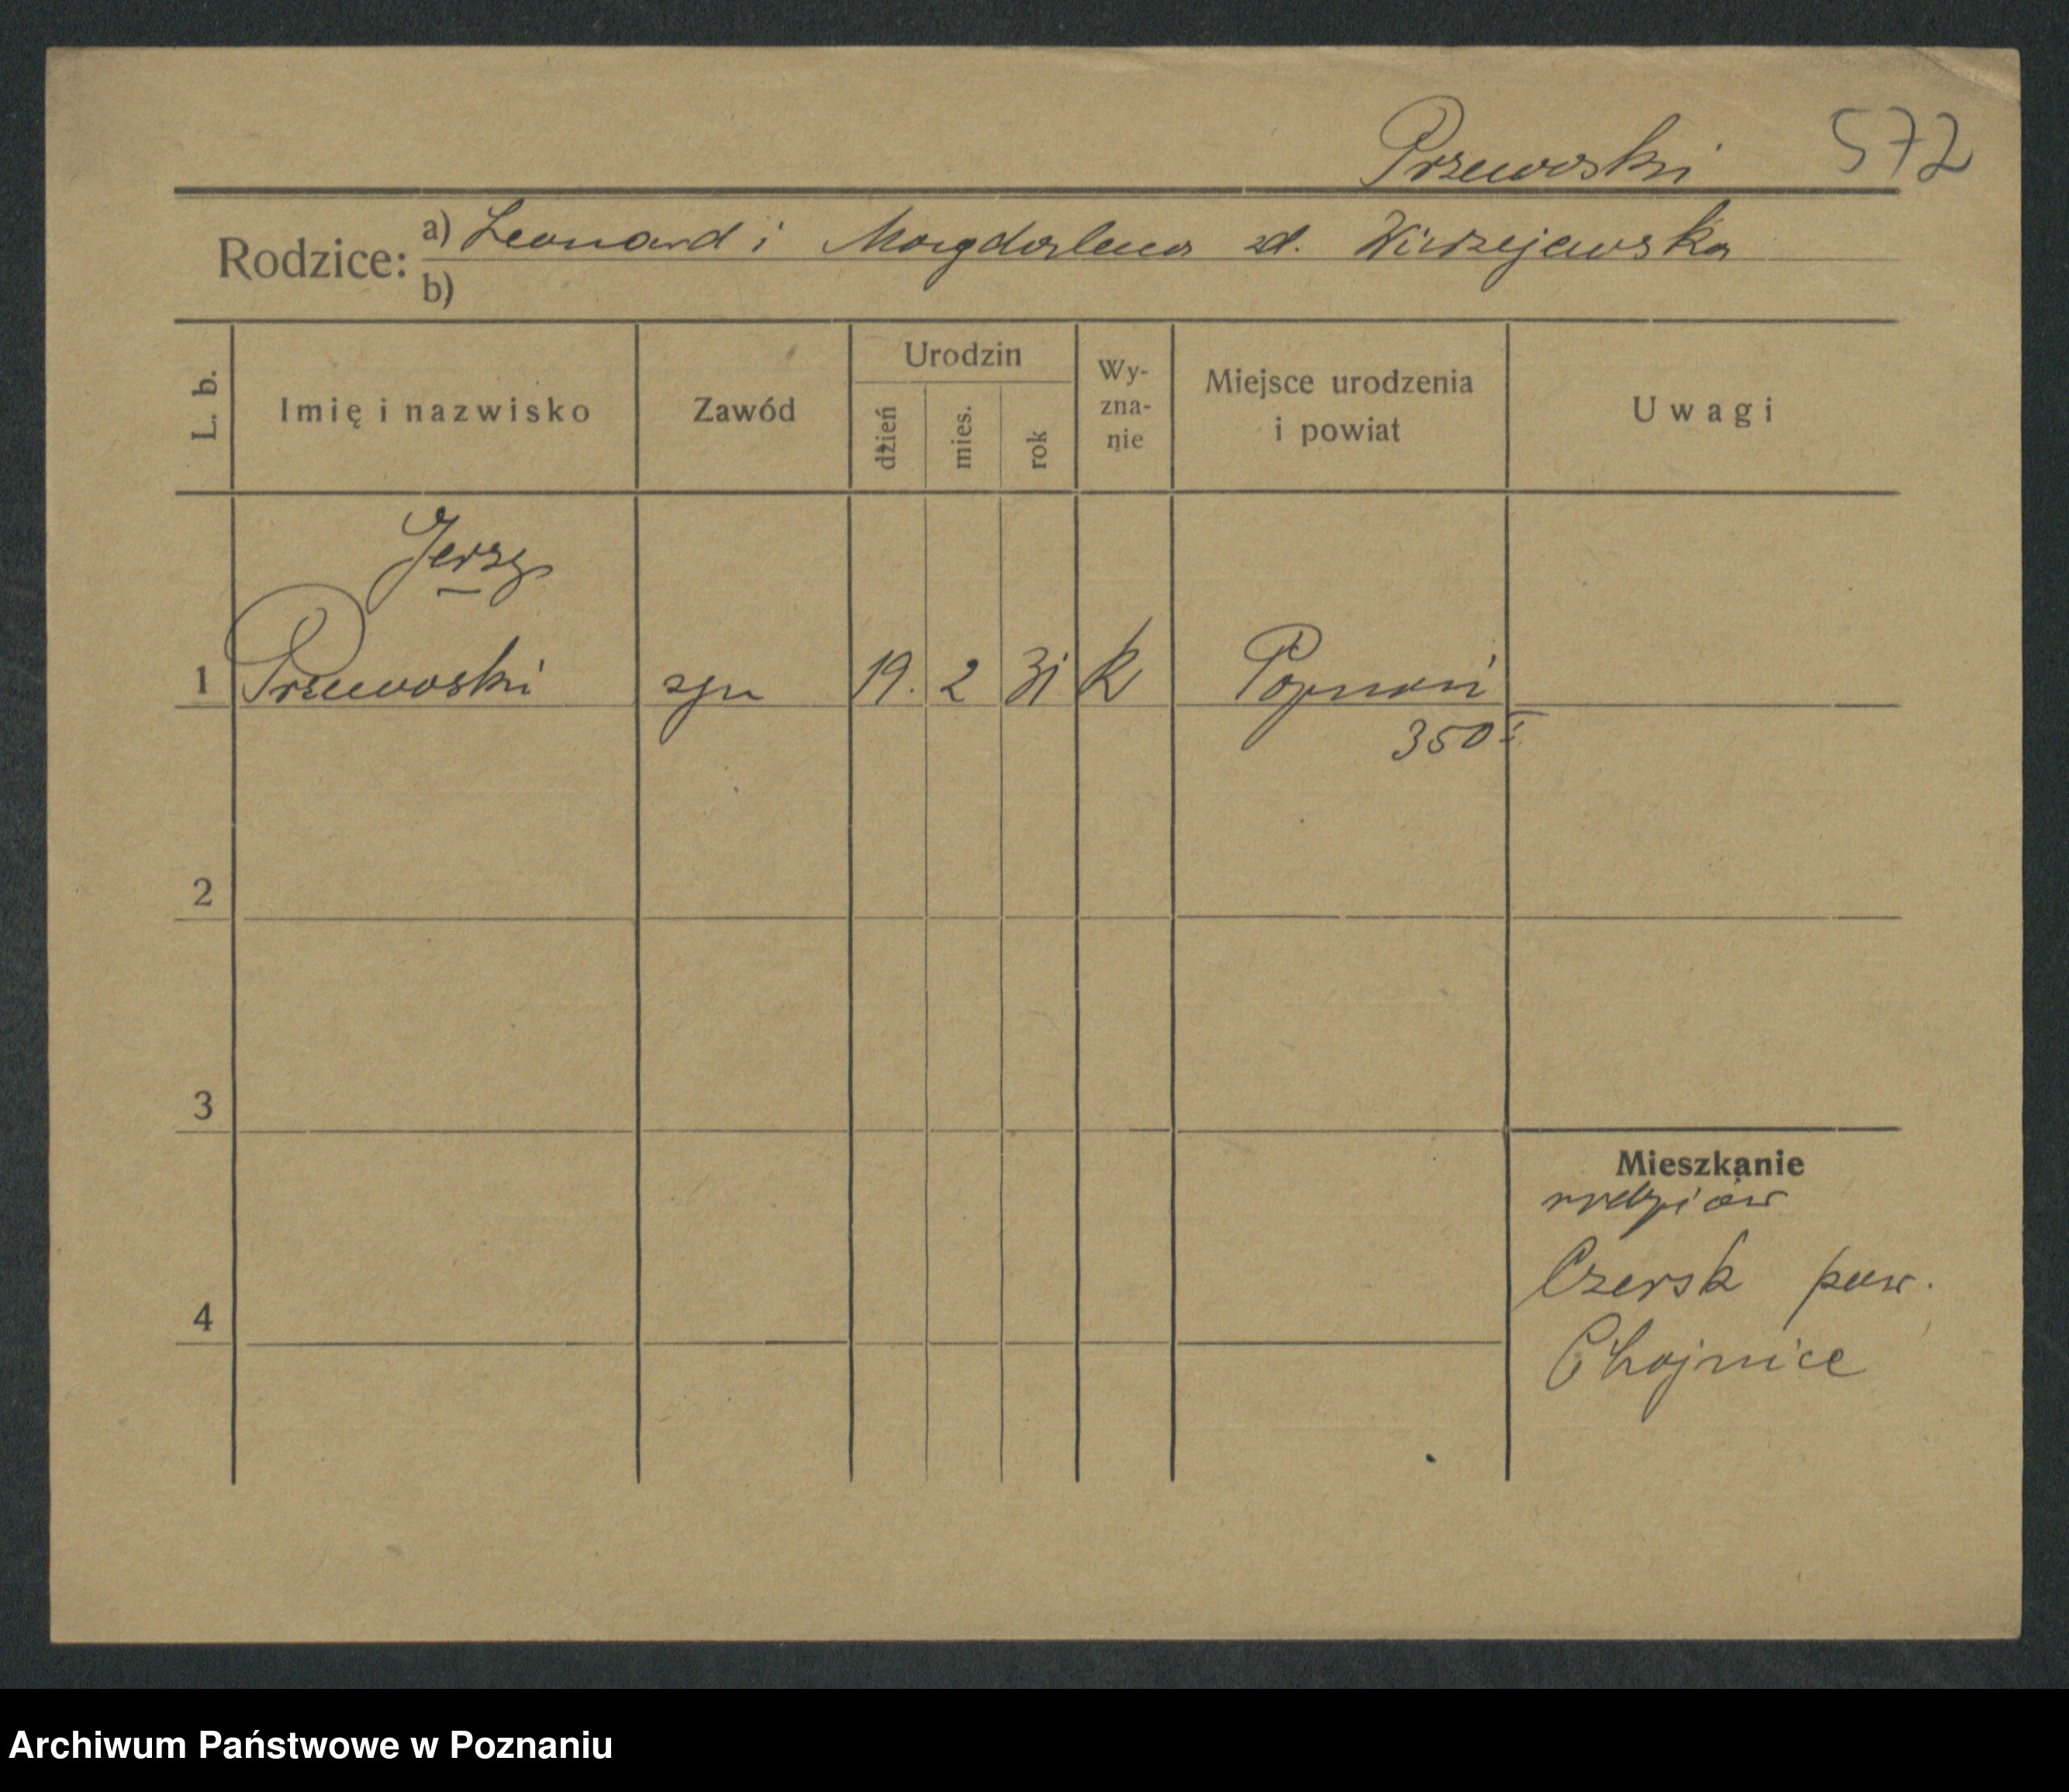 Przewoski 572
Rodzice: a) Leonard i Magdalena zd. Wirzejewska
b)
L. b. Imię i nazwisko Zawód Urodzin dzień mies. rok Wy-zna-nie Miejsce urodzenia i powiat Uwagi
Jerzy
1 Przewoski syn 19. 2 31 k Poznań
350
2
3
Mieszkanie
rodziców
Czersk pow.
4
Chojnice
Archiwum Państwowe w Poznaniu